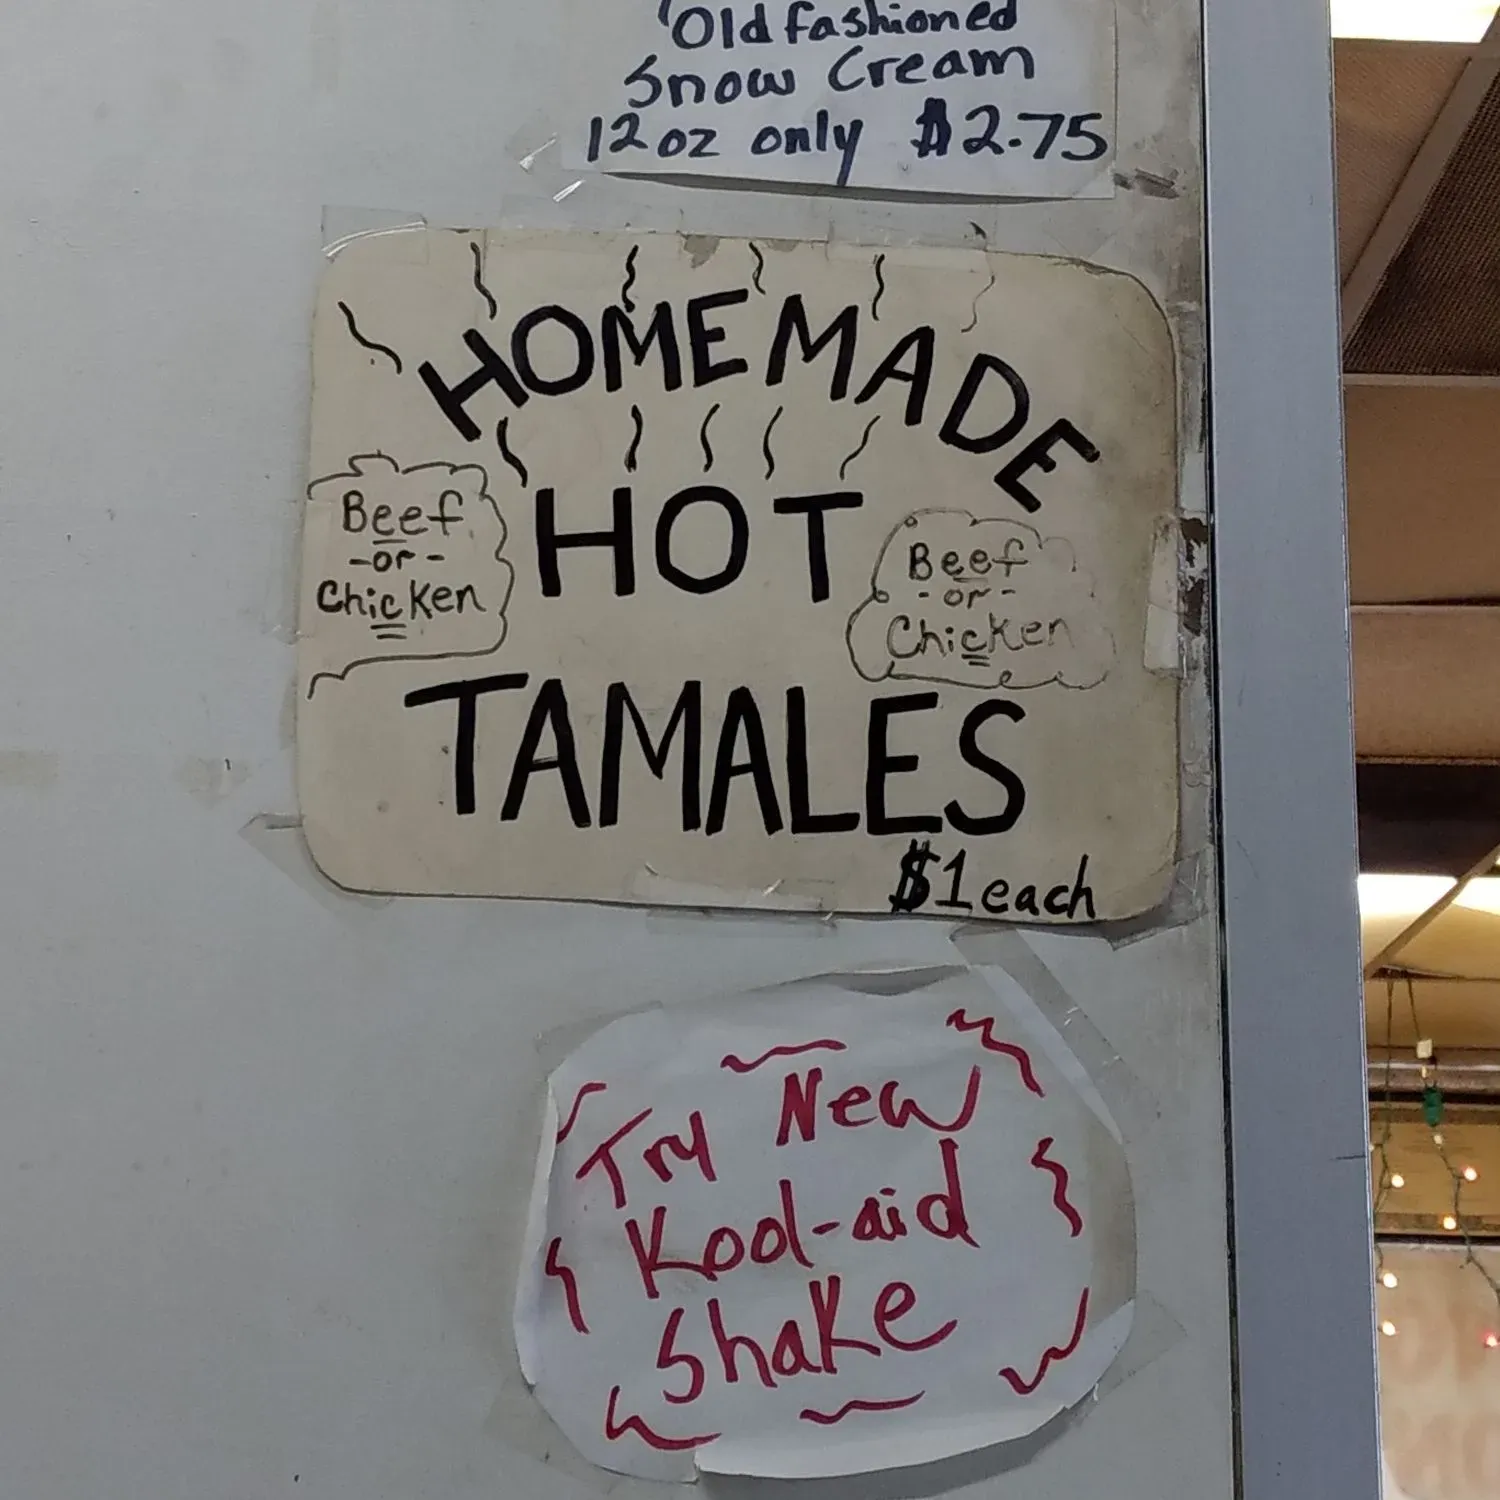 Old fashioned
Snow Cream
12oz only $2.75
HOMEMADE
HOT
TAMALES
Beef
-or-
Chicken
Beef
-or-
Chicken
$1 each
Try New
Kool-aid
Shake